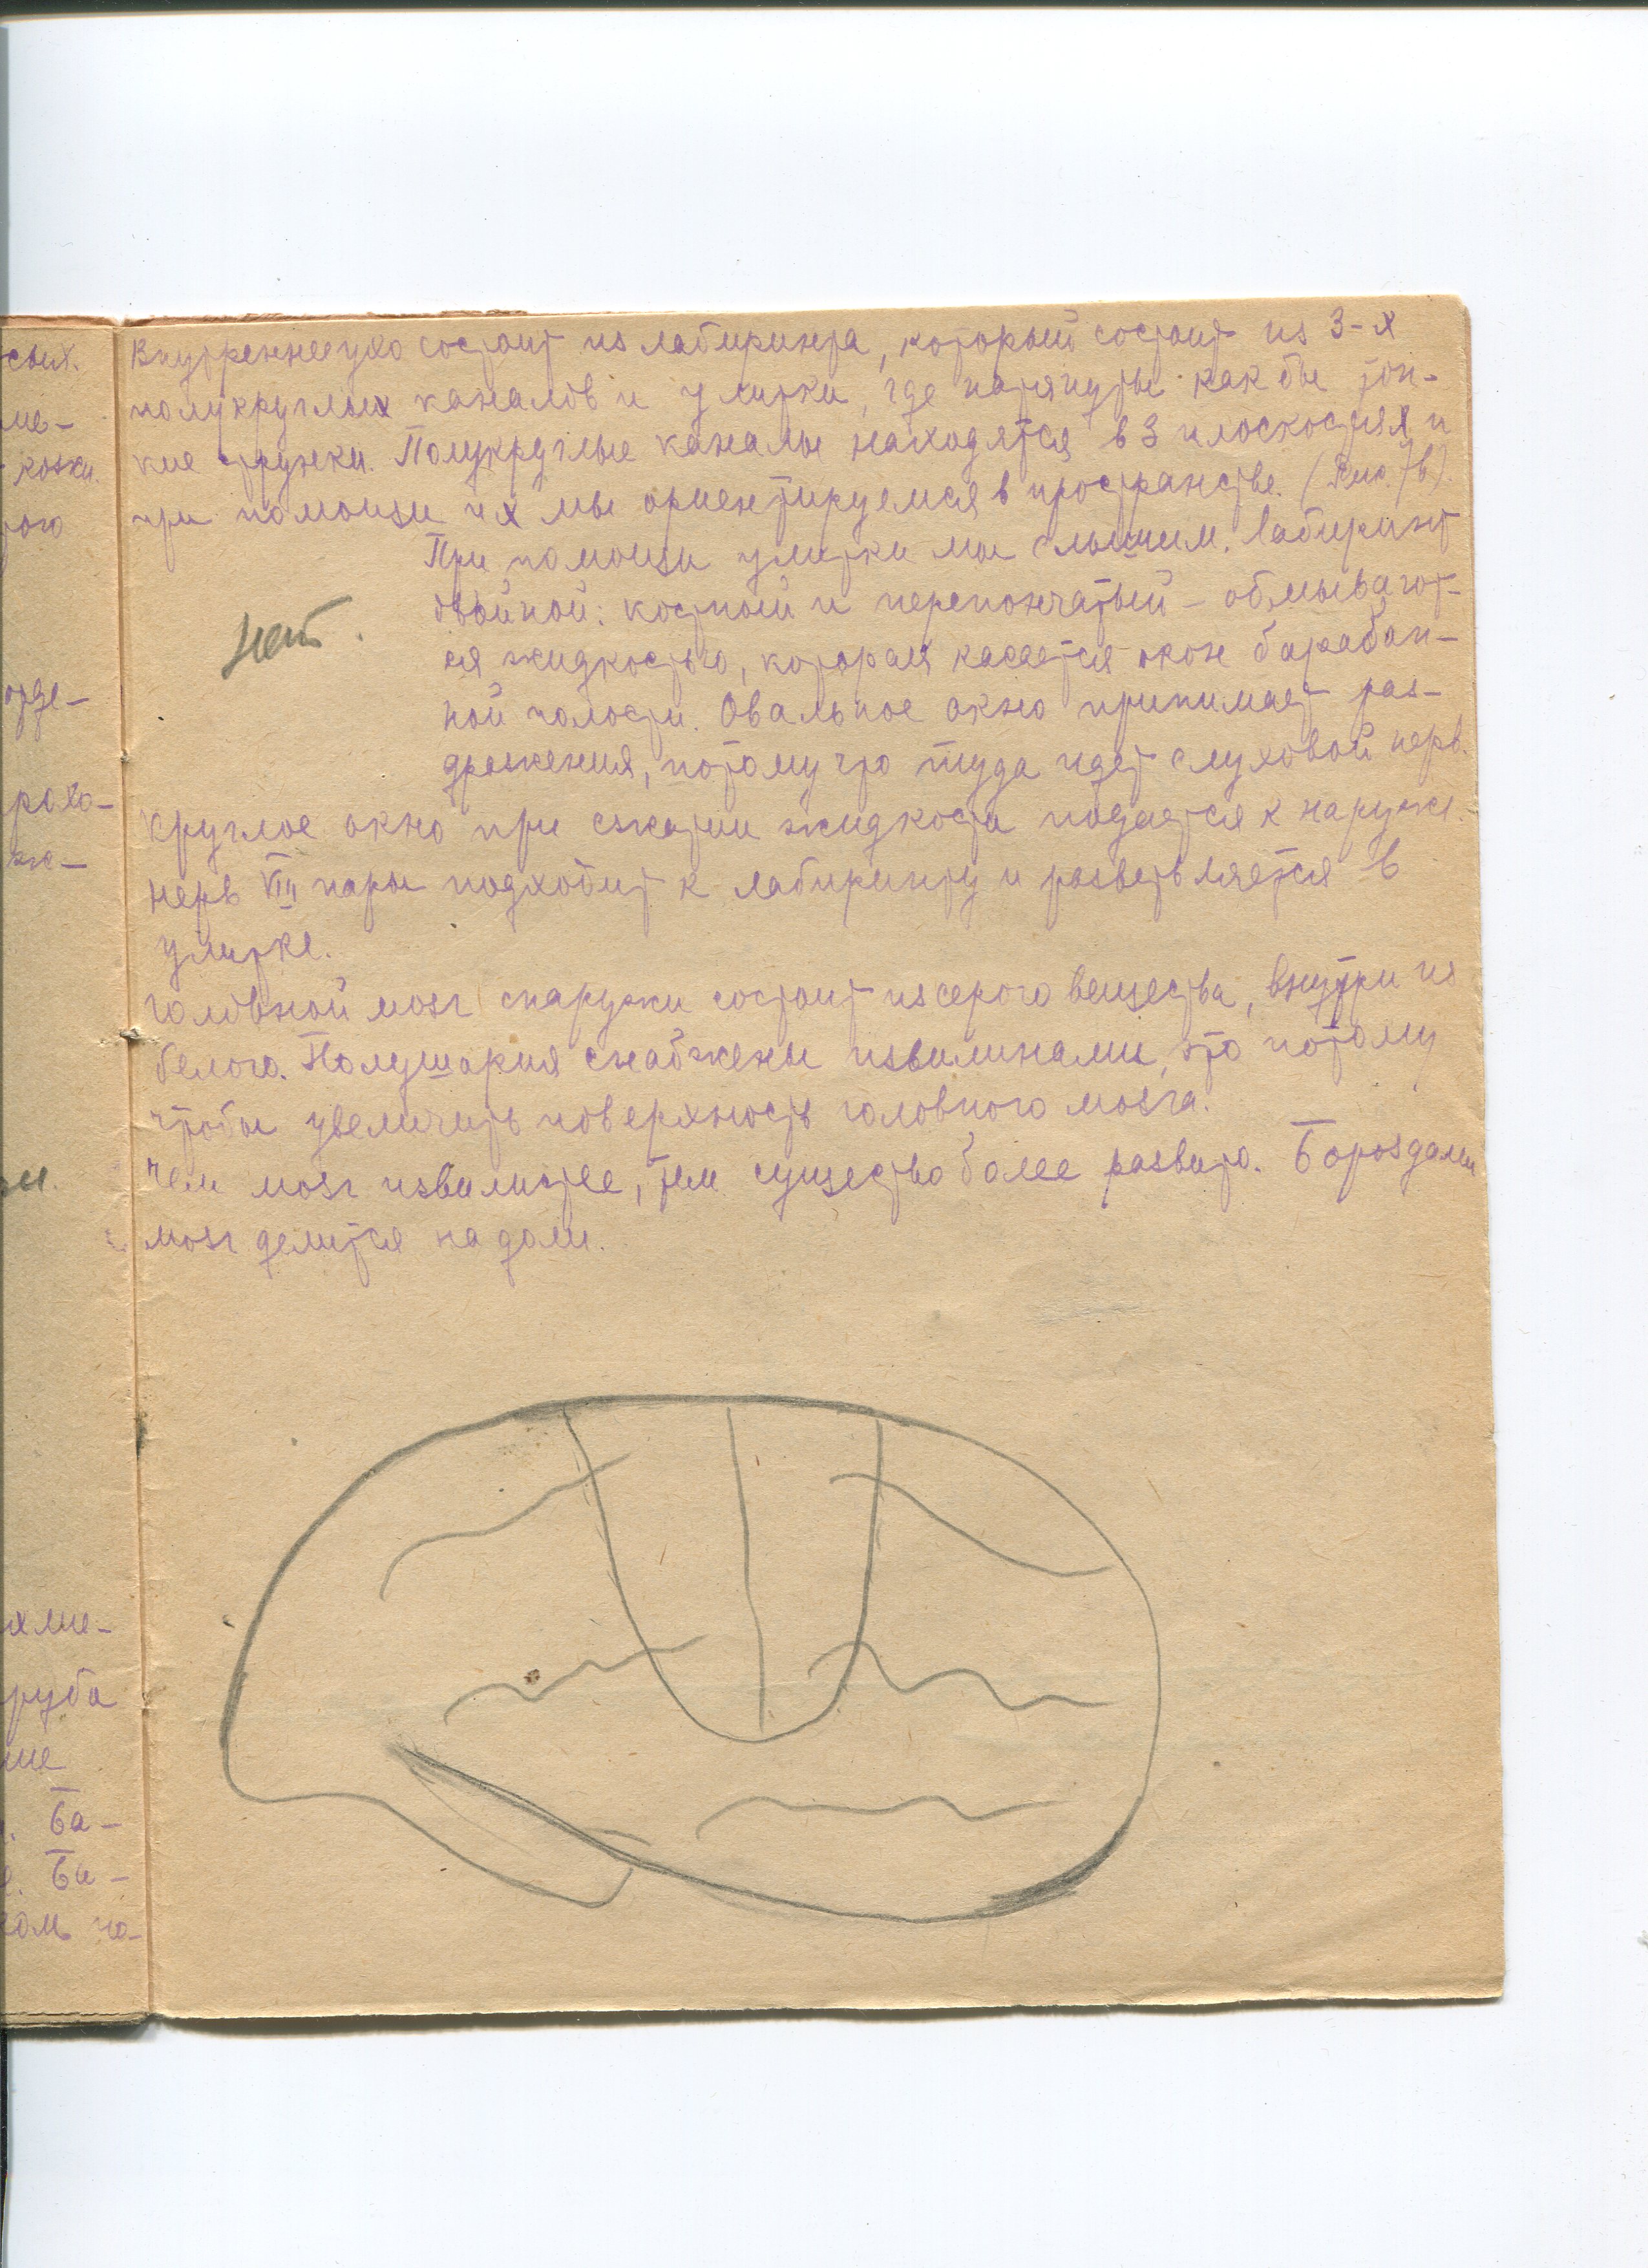 сых.
ме-
кожи.
рого
отде-
рохо-
ж-
хме-
руба
ме
. Ба-
. Би-
Внутреннее ухо состоит из лабиринта, который состоит из 3-х
полукруглых каналов и улитки, где натянуты как бы тон-
кие струнки. Полукруглые каналы находятся в 3 плоскостях и
при помощи их мы ориентируемся в пространстве. (Рис. 7в).
При помощи улитки мы слышим. Лабиринт
двойной: костный и перепончатый – обмывают-
ся жидкостью, которая касается окон барабан-
ной полости. Овальное окно принимает раз-
дражения, потому что туда идет слуховой нерв.
нет.
Круглое окно при сжатии жидкости подается к наруже.
Нерв VIII пары подходит к лабиринту и разветвляется в
улитке.
Головной мозг снаружи состоит из серого вещества, внутри из
белого. Полушария снабжены извилинами, это потому
чтобы увеличить поверхность головного мозга.
Чем мозг извилистее, тем существо более развито. Бороздами
мозг делится на доли.